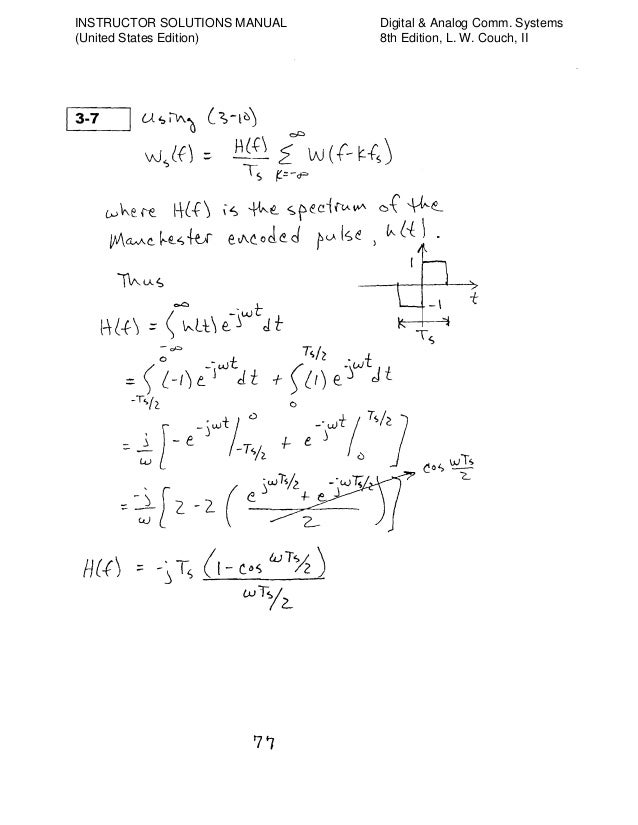 INSTRUCTOR SOLUTIONS MANUAL Digital & Analog Comm. Systems
(United States Edition) 8th Edition, L. W. Couch, II
3-7 Using (3-10)
W_s(f) = H(f)/T_s ∑_{k=-∞}^{∞} W(f-kf_s)
where H(f) is the spectrum of the
Manchester encoded pulse, h(t).
1
-1
t
T_s
Thus
H(f) = ∫_{-∞}^{∞} h(t) e^{-jωt} dt
= ∫_{-T_s/2}^{0} (-1) e^{-jωt} dt + ∫_{0}^{T_s/2} (1) e^{-jωt} dt
= j/ω [ -e^{-jωt} |_{-T_s/2}^{0} + e^{-jωt} |_{0}^{T_s/2} ]
= -j/ω [ 2 - 2 ( (e^{jωT_s/2} + e^{-jωT_s/2})/2 ) ] cos ωT_s/2
H(f) = -j T_s (1 - cos ωT_s/2)/(ωT_s/2)
77